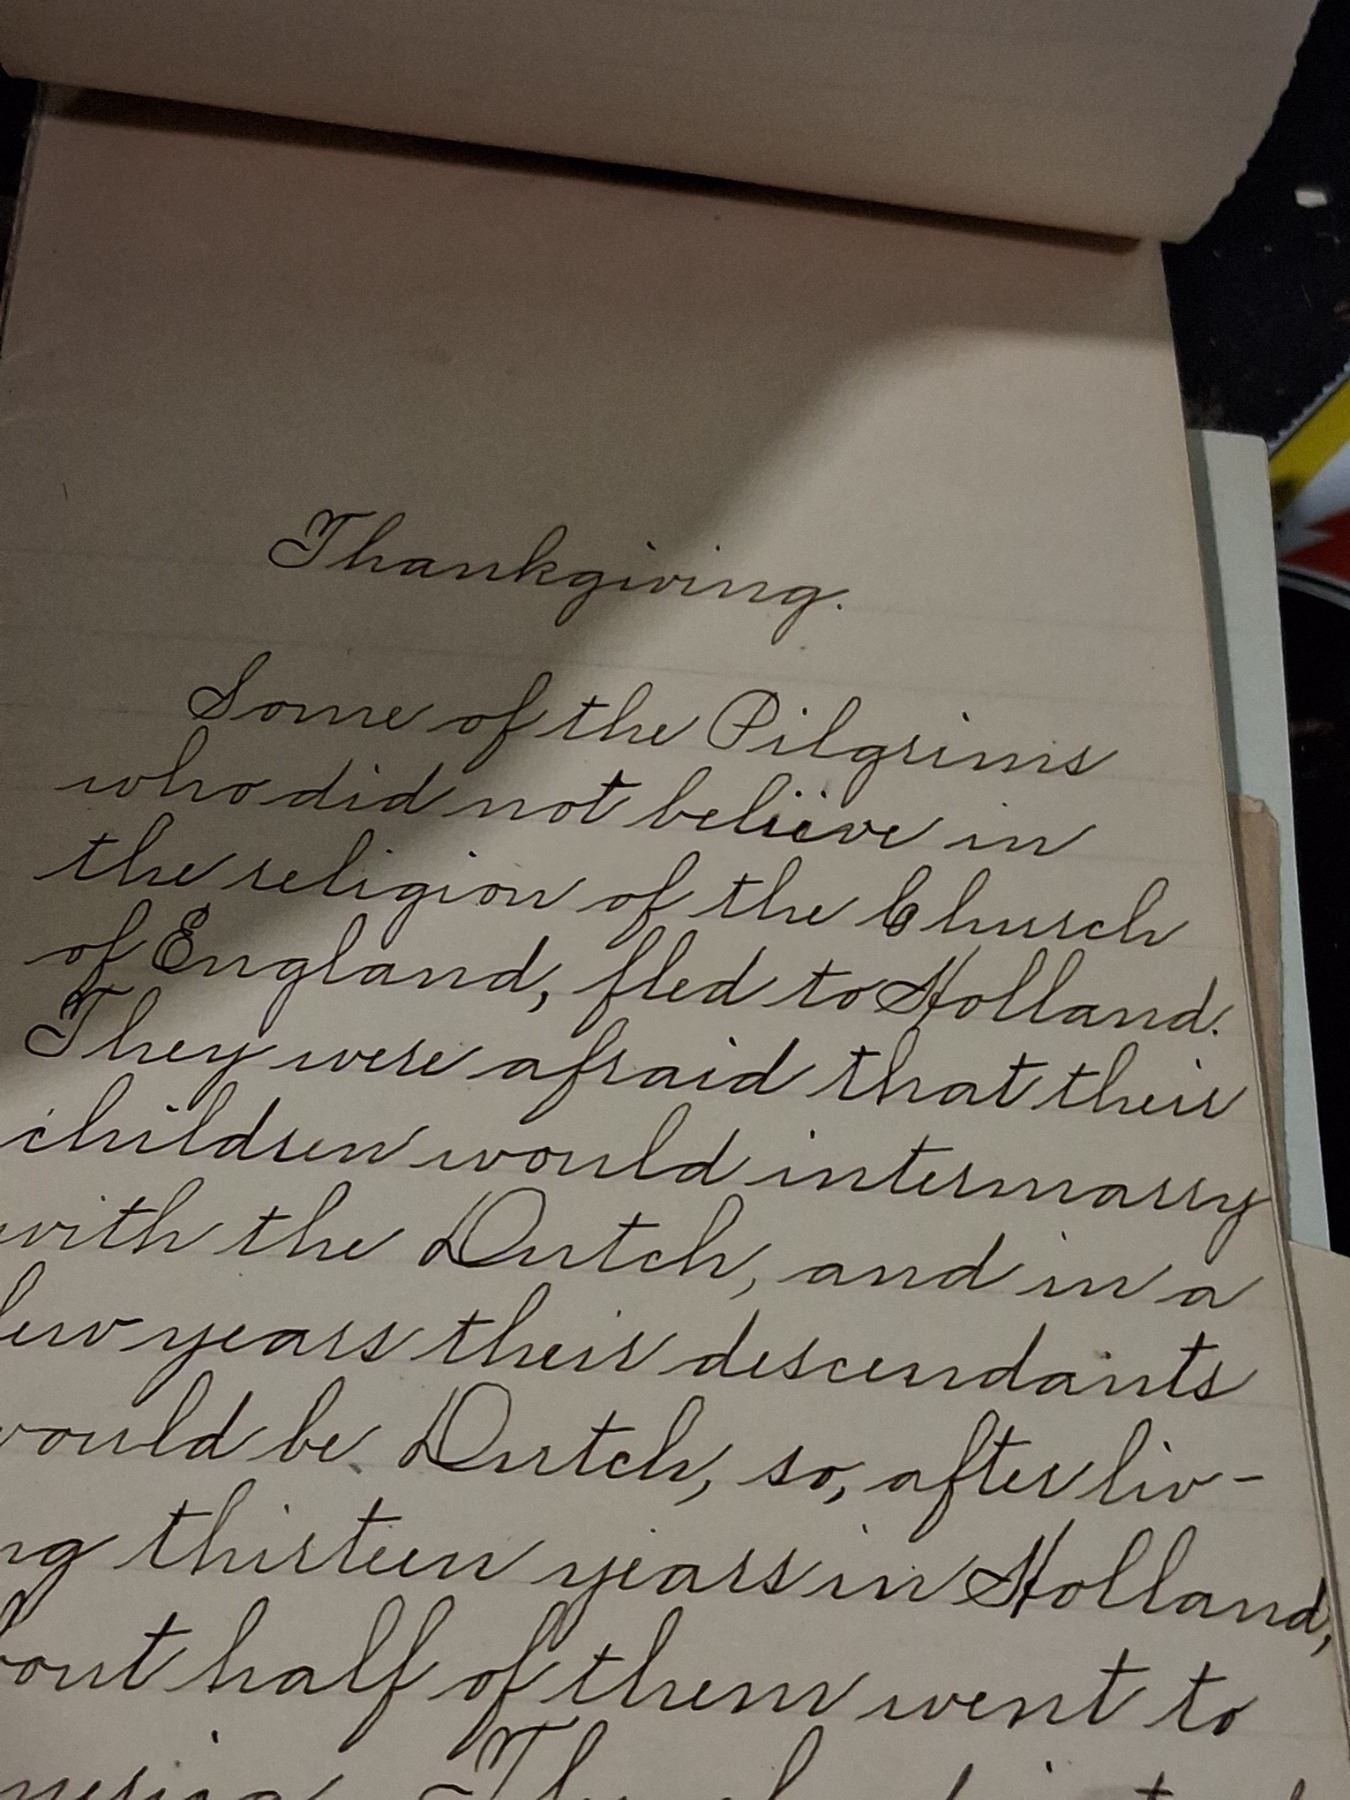 Thankgiving.
Some of the Pilgrims
who did not believe in
the religion of the Church
of England, fled to Holland.
They were afraid that their
children would intermarry
with the Dutch, and in a
few years their descendants
would be Dutch, so, after liv-
ng thirteen years in Holland,
bout half of them went to
merica. They